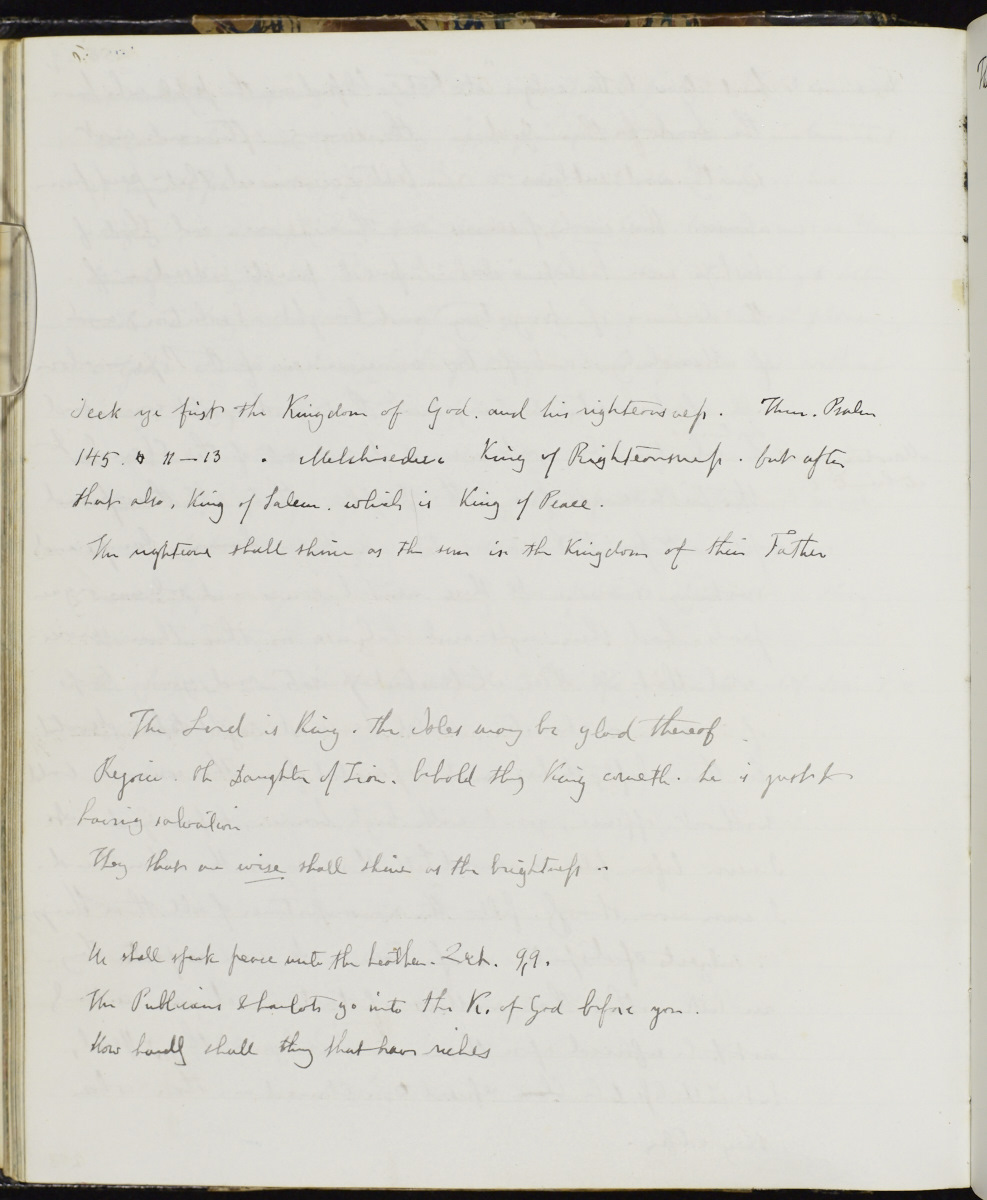 Seek ye first the Kingdom of God. and his righteousness. Then. Psalm
145. 11–13. Melchisedec King of Righteousness. but after
that also, King of Salem. which is King of Peace.
The righteous shall shine as the sun in the Kingdom of their Father
The Lord is King. the isles may be glad thereof.
Rejoice. Oh Daughter of Zion. behold thy King cometh. he is just &
having salvation
They that are wise shall shine as the brightness..
He shall speak peace unto the heathen. Zech. 9,9.
The Publicans & harlots go into the K. of God before you.
How hardly shall they that have riches